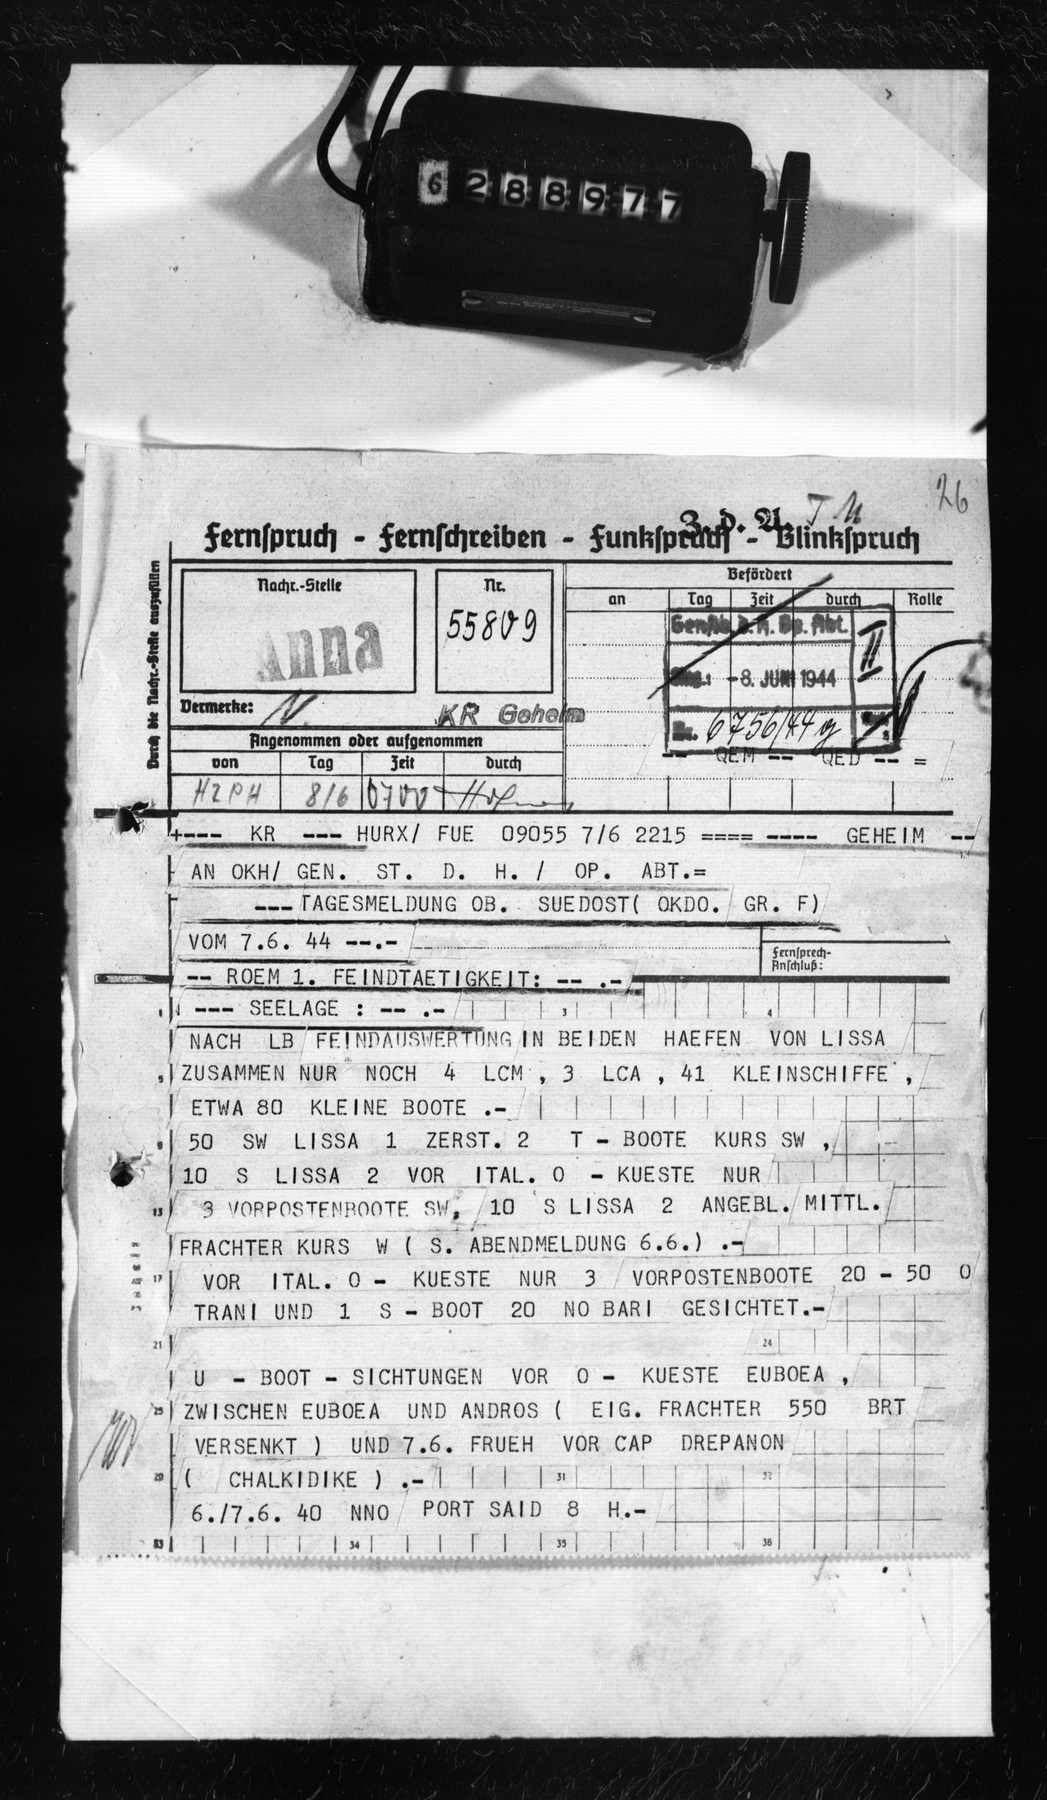 6288977
26
Z. d. A.
Fernspruch - Fernschreiben - Funkspruch - Blinkspruch
Durch die Nachr.-Stelle auszufüllen
Nachr.-Stelle
Anna
Nr.
55809
Befördert
an Tag Zeit durch Rolle
GenSt. d. H. Op. Abt.
II
-8. JUNI 1944
Nr. 6756/44 g
Vermerke:
KR Geheim
Angenommen oder aufgenommen
von Tag Zeit durch
HZPH 8/6 0700
-- QEM -- QED -- =
+--- KR --- HURX/ FUE 09055 7/6 2215 ==== ---- GEHEIM --
AN OKH/ GEN. ST. D. H. / OP. ABT.=
---TAGESMELDUNG OB. SUEDOST( OKDO. GR. F)
VOM 7.6. 44 --.-
Fernsprech-
Anschluß:
-- ROEM 1. FEINDTAETIGKEIT: -- .-
--- SEELAGE : -- .-
NACH LB FEINDAUSWERTUNG IN BEIDEN HAEFEN VON LISSA
ZUSAMMEN NUR NOCH 4 LCM , 3 LCA , 41 KLEINSCHIFFE ,
ETWA 80 KLEINE BOOTE .-
50 SW LISSA 1 ZERST. 2 T - BOOTE KURS SW ,
10 S LISSA 2 VOR ITAL. O - KUESTE NUR
3 VORPOSTENBOOTE SW, 10 S LISSA 2 ANGEBL. MITTL.
FRACHTER KURS W ( S. ABENDMELDUNG 6.6.) .-
VOR ITAL. O - KUESTE NUR 3 VORPOSTENBOOTE 20 - 50 O
TRANI UND 1 S - BOOT 20 NO BARI GESICHTET.-
U - BOOT - SICHTUNGEN VOR O - KUESTE EUBOEA ,
ZWISCHEN EUBOEA UND ANDROS ( EIG. FRACHTER 550 BRT
VERSENKT ) UND 7.6. FRUEH VOR CAP DREPANON
( CHALKIDIKE ) .-
6./7.6. 40 NNO PORT SAID 8 H.-